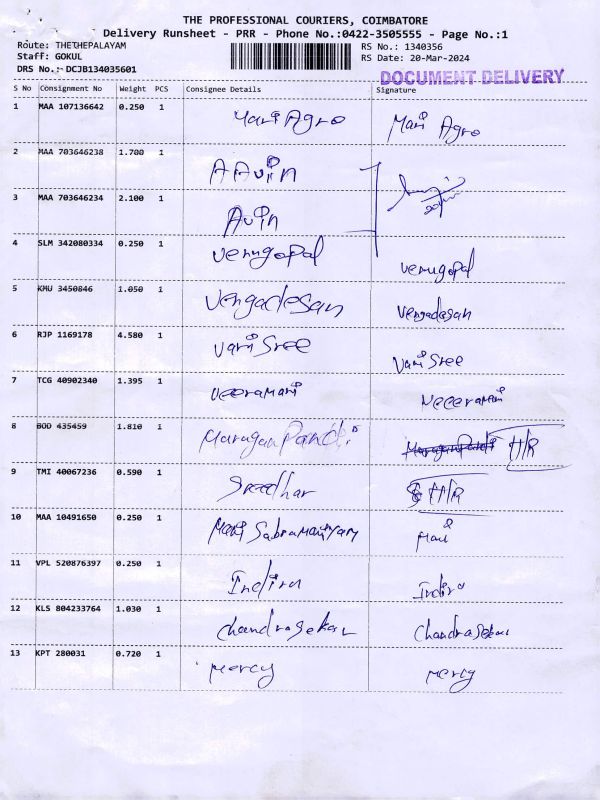 THE PROFESSIONAL COURIERS, COIMBATORE
Delivery Runsheet - PRR - Phone No.:0422-3505555 - Page No.:1
Route: THETHEPALAYAM RS No.: 1340356
Staff: GOKUL RS Date: 20-Mar-2024
DRS No.:- DCJB134035601
DOCUMENT DELIVERY
S No Consignment No Weight PCS Consignee Details Signature
1 MAA 107136642 0.250 1 Mari Agro Mari Agro
2 MAA 703646238 1.700 1 AAvin
3 MAA 703646234 2.100 1 Avin
4 SLM 342080334 0.250 1 Venugopal Venugopal
5 KMU 3450846 1.050 1 Vengadesan Vengadasan
6 RJP 1169178 4.580 1 Vari Sree Vari Sree
7 TCG 40902340 1.395 1 Veeramani Veeramani
8 BOD 435459 1.810 1 MaruganPandi H/R
9 TMI 40067236 0.590 1 Sreedhar H/R
10 MAA 10491650 0.250 1 Mani Sabramaniyam Mani
11 VPL 520876397 0.250 1 Indira Indira
12 KLS 804233764 1.030 1 Chandrasekar Chandrasekar
13 KPT 280031 0.720 1 Mercy Mercy